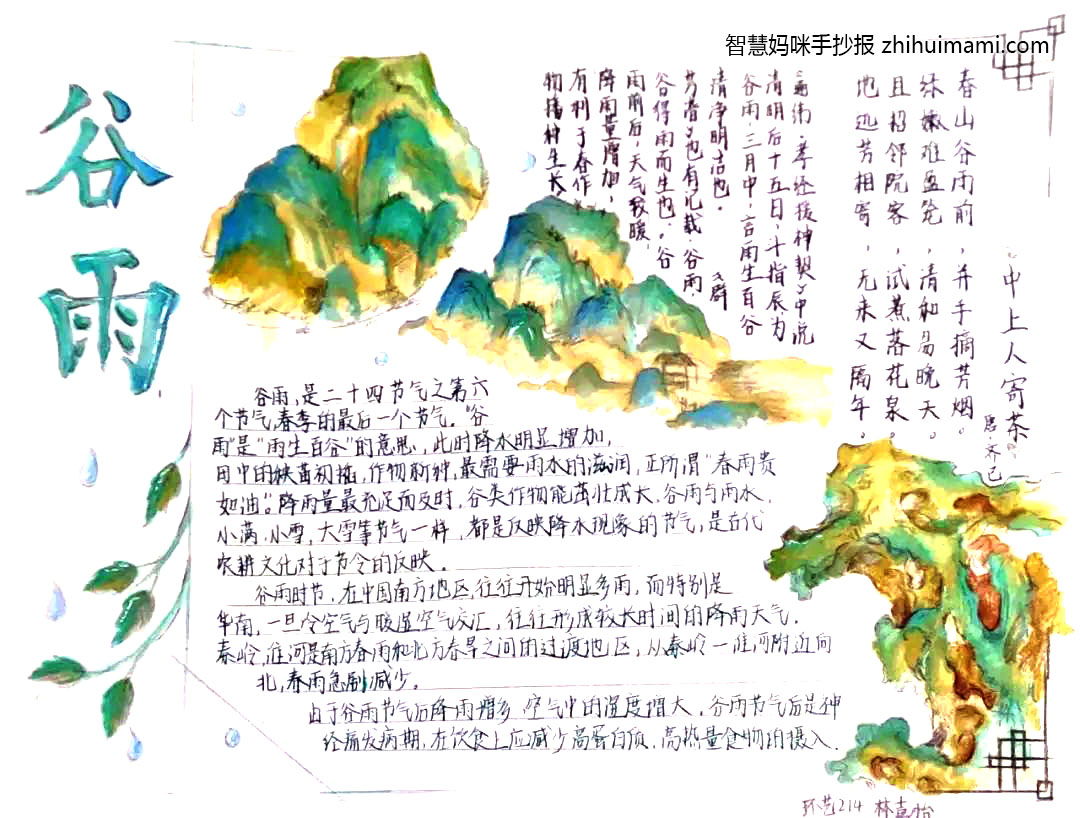 智慧妈咪手抄报 zhihuimami.com
谷雨
中上人寄茶
唐·齐己
春山谷雨前，并手摘芳烟。
绿嫩难盈笼，清和易晚天。
且招邻院客，试煮落花泉。
地远劳相寄，无来又隔年。
孝经援神契》中说
清明后十五日，斗指辰为
谷雨，三月中，言雨生百谷
清净明洁也。《群
芳谱》也有记载：谷雨，
谷得雨而生也。谷
雨前后，天气较暖，
降雨量增加，
有利于春作
物播种生长
谷雨，是二十四节气之第六
个节气，春季的最后一个节气。“谷
雨”是“雨生百谷”的意思，此时降水明显增加，
田中的秧苗初插，作物新种，最需要雨水的滋润，正所谓“春雨贵
如油”。降雨量最充足而及时，谷类作物能茁壮成长。谷雨与雨水，
小满，小雪，大雪等节气一样，都是反映降水现象的节气，是古代
农耕文化对于节令的反映。
谷雨时节，在中国南方地区，往往开始明显多雨，而特别是
华南，一旦冷空气与暖湿空气交汇，往往形成较长时间的降雨天气。
秦岭，淮河是南方春雨和北方春旱之间的过渡地区，从秦岭一淮河附近向
北，春雨急剧减少。
由于谷雨节气后降雨增多，空气中的湿度增大，谷雨节气后是神
经痛发病期，在饮食上应减少高蛋白质，高热量食物的摄入.
环艺214 林嘉怡